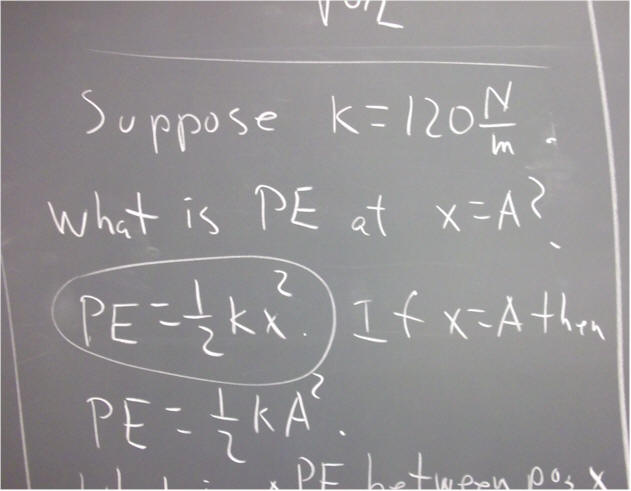 Suppose k=120 N/m.
What is PE at x=A?
PE=1/2 kx². If x=A then
PE=1/2 kA².
PE between pos x